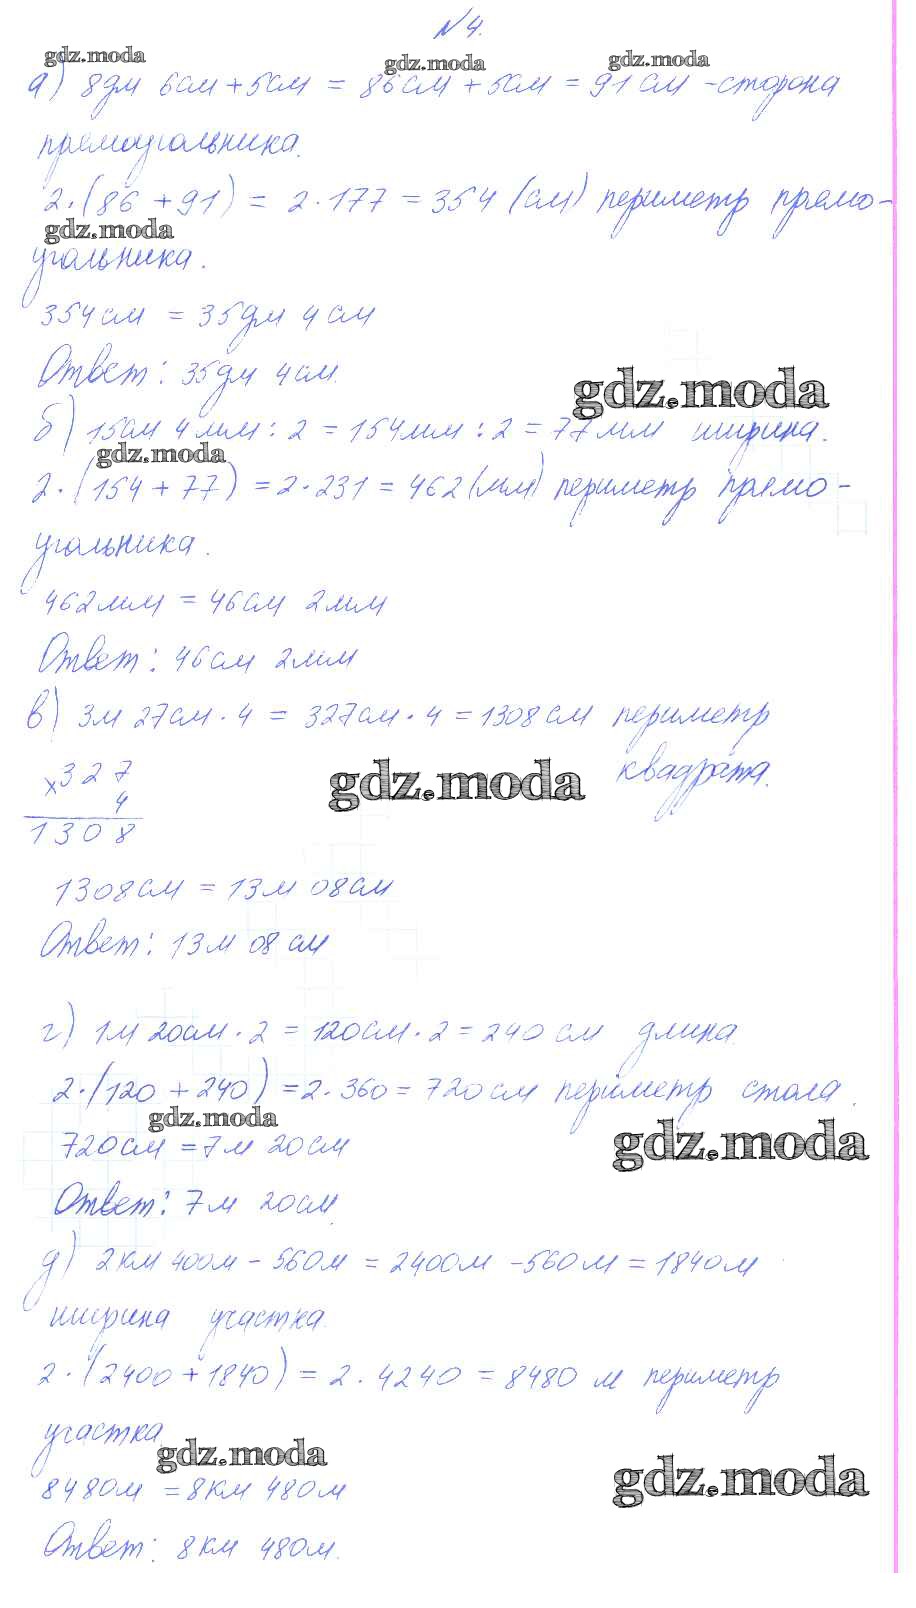 №4.
gdz.moda gdz.moda gdz.moda
а) 8дм 6см + 5см = 86см + 5см = 91см - сторона
прямоугольника.
2·(86 + 91) = 2·177 = 354 (см) периметр прямо-
gdz.moda
угольника.
354см = 35дм 4см
Ответ: 35дм 4см.
gdz.moda
б) 15см 4мм : 2 = 154мм : 2 = 77мм ширина.
gdz.moda
2·(154 + 77) = 2·231 = 462 (мм) периметр прямо-
угольника.
462мм = 46см 2мм
Ответ: 46см 2мм
в) 3м 27см · 4 = 327см · 4 = 1308см периметр
х327 gdz.moda квадрата.
4
1308
1308см = 13м 08см
Ответ: 13м 08см
г) 1м 20см · 2 = 120см · 2 = 240см длина.
2·(120 + 240) = 2·360 = 720см периметр стола.
gdz.moda gdz.moda
720см = 7м 20см
Ответ: 7м 20см.
д) 2км 400м - 560м = 2400м - 560м = 1840м
ширина участка.
2·(2400 + 1840) = 2·4240 = 8480 м периметр
участка.
gdz.moda gdz.moda
8480м = 8км 480м
Ответ: 8км 480м.